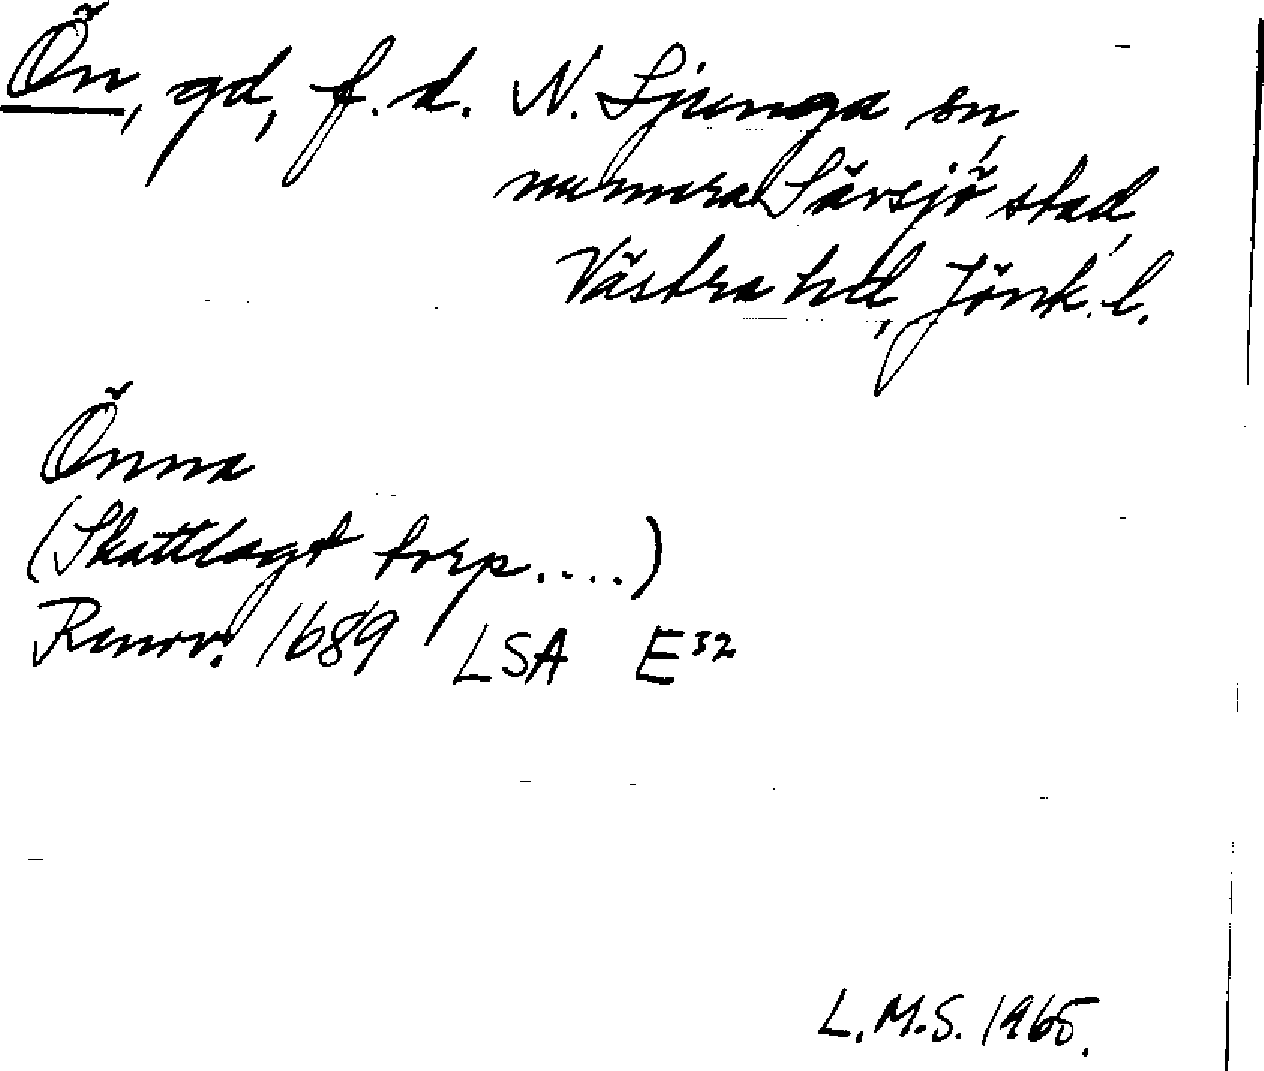 Ön, gd, f.d. N. Ljunga sn,
numera Sävsjö stad,
Västra hd, Jönk. l.
Önna
(Skattlagt torp....)
Renov. 1689 LSA E³²
L.M.S. 1965.